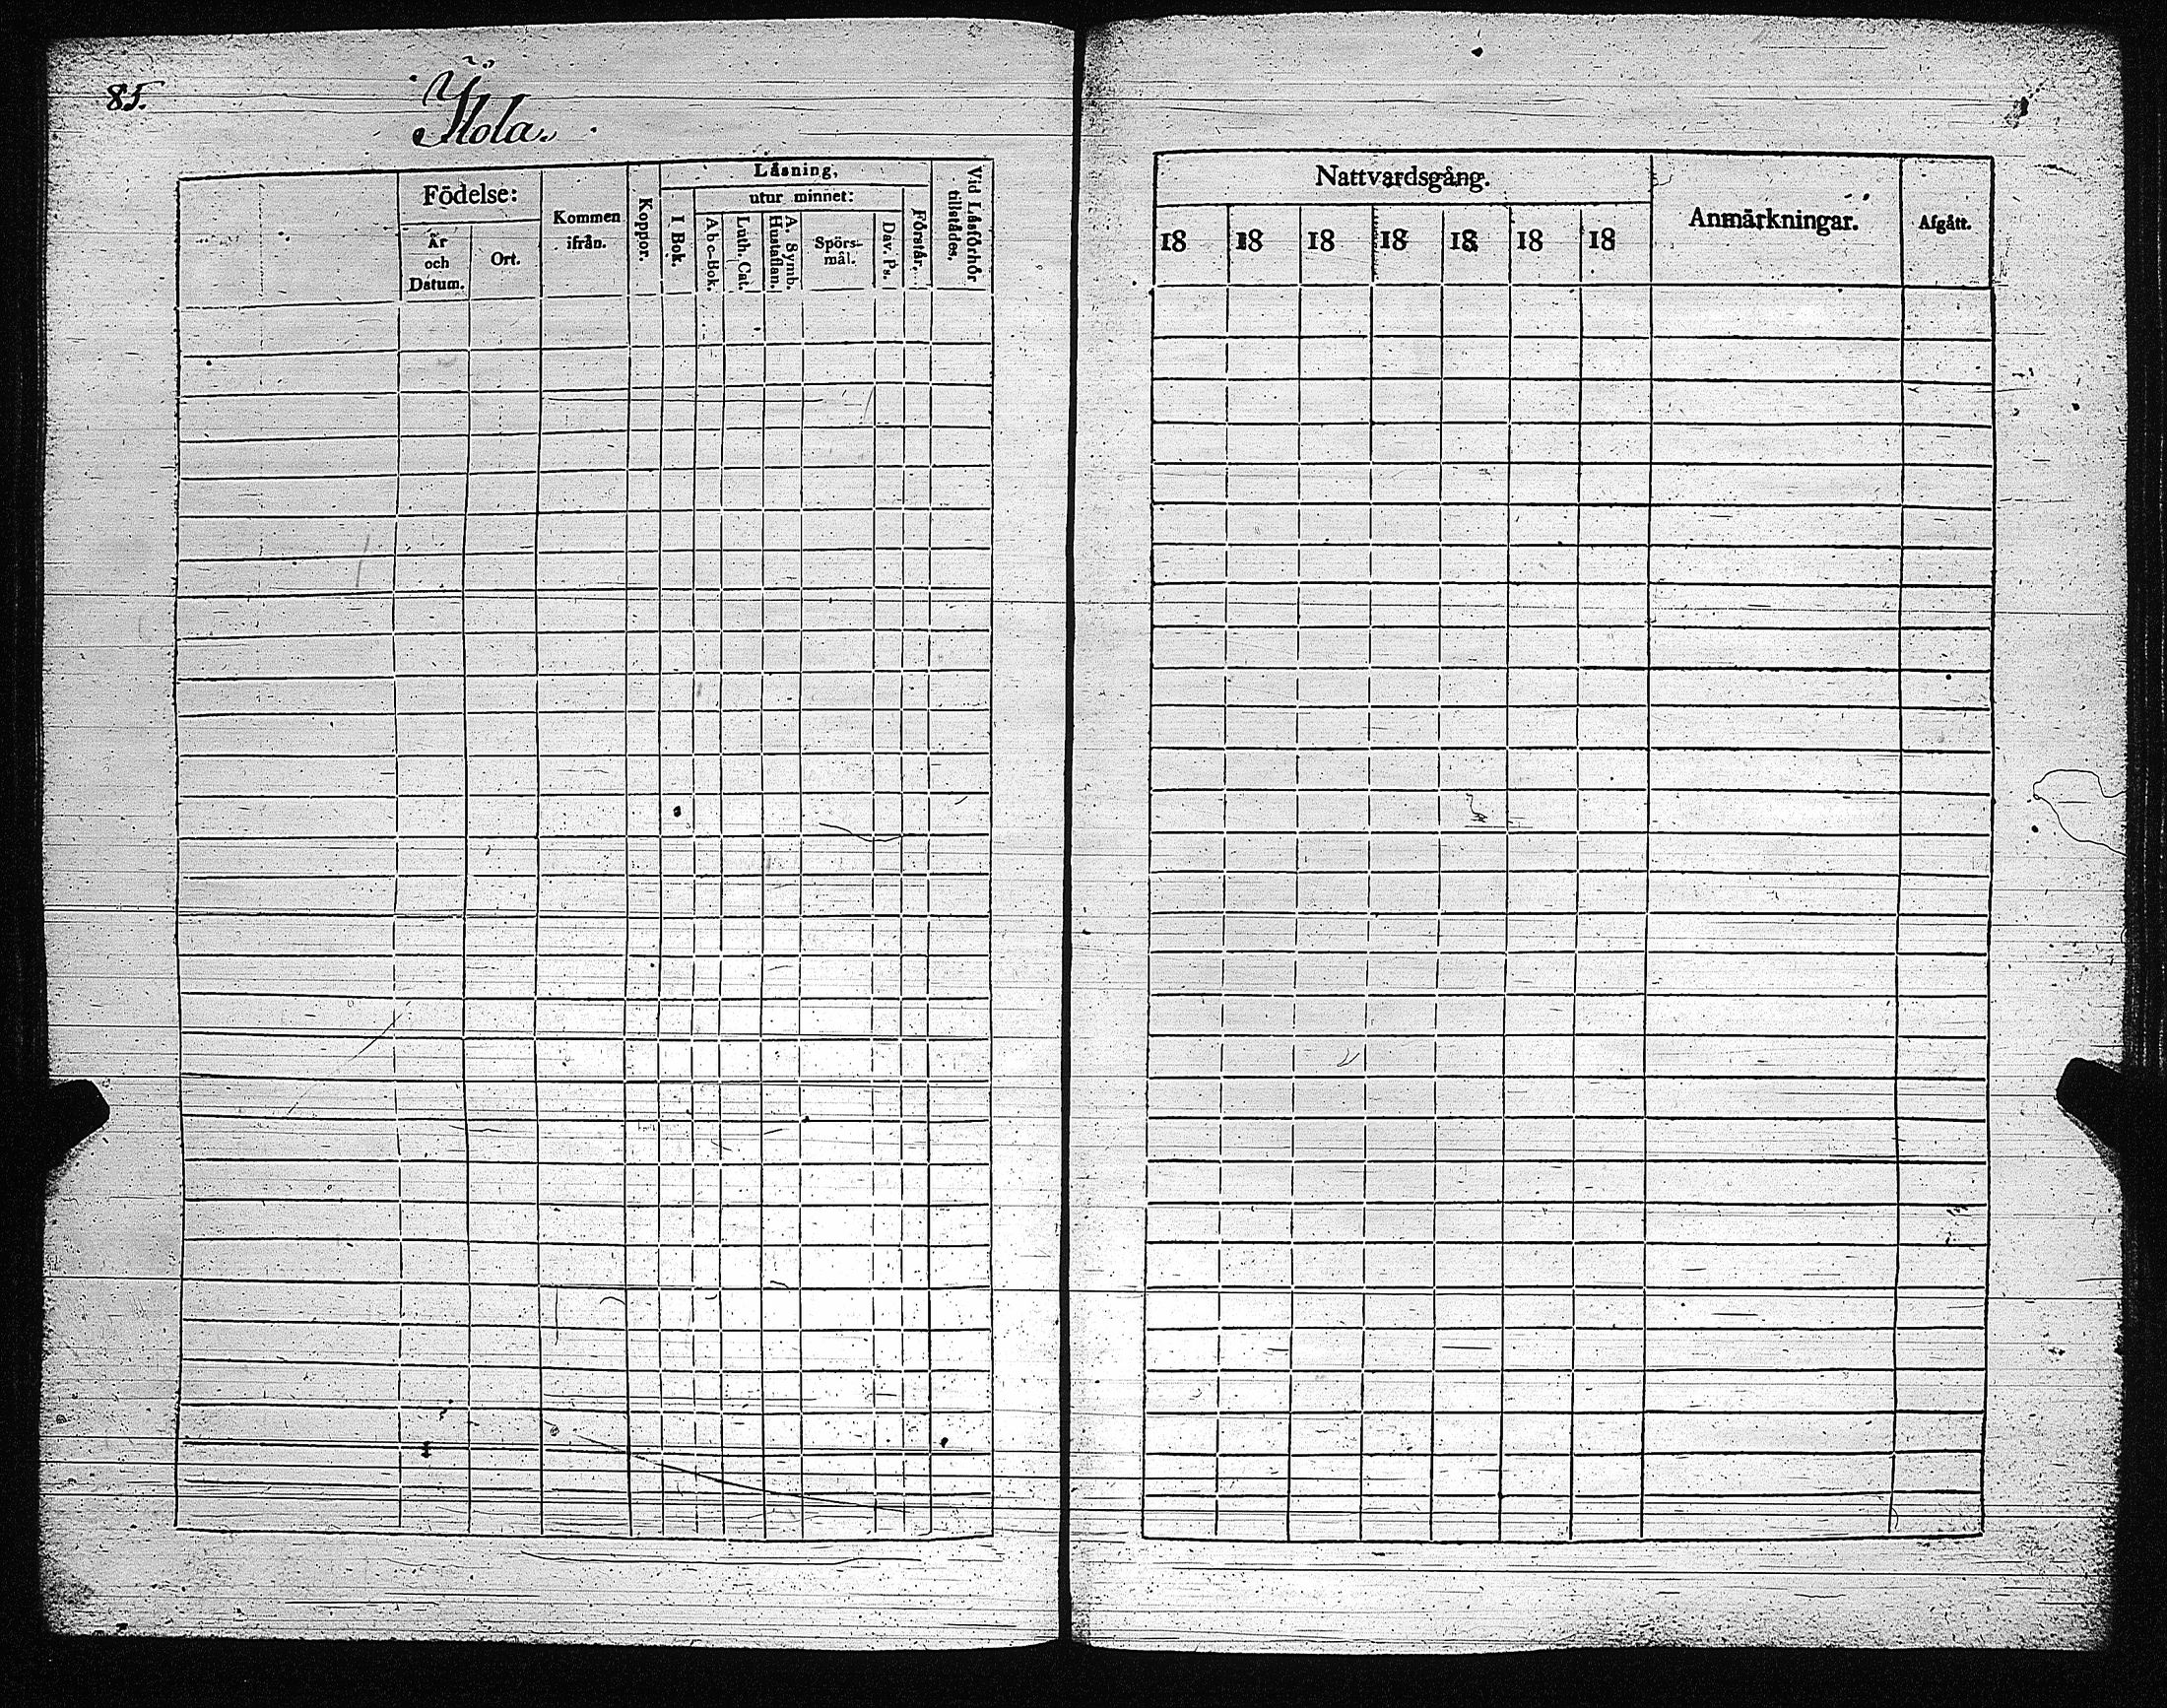 85.
Ylola.
Födelse:
År och Datum.
Ort.
Kommen ifrån.
Koppor.
Läsning,
I Bok.
utur minnet:
Abc-Bok.
Luth. Cat.
A. Symb. Hustaflan.
Spörs-mål.
Dav. Ps.
Förstår.
Vid Läsförhör tillstådes.
Nattvardsgång.
18 18 18 18 18 18 18
Anmärkningar.
Afgått.